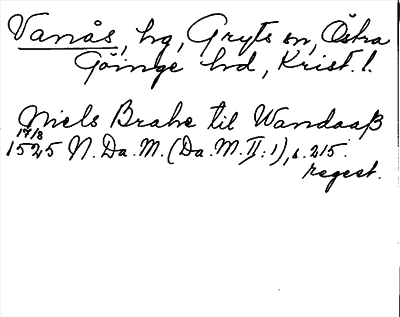 Vanås, hg, Gryts sn, Östra
Göinge hd, Krist. l.
Niels Brahe til Wandaaß
17/8
1525 N. Da. M. (Da. M. II: 1), s. 215.
regest.